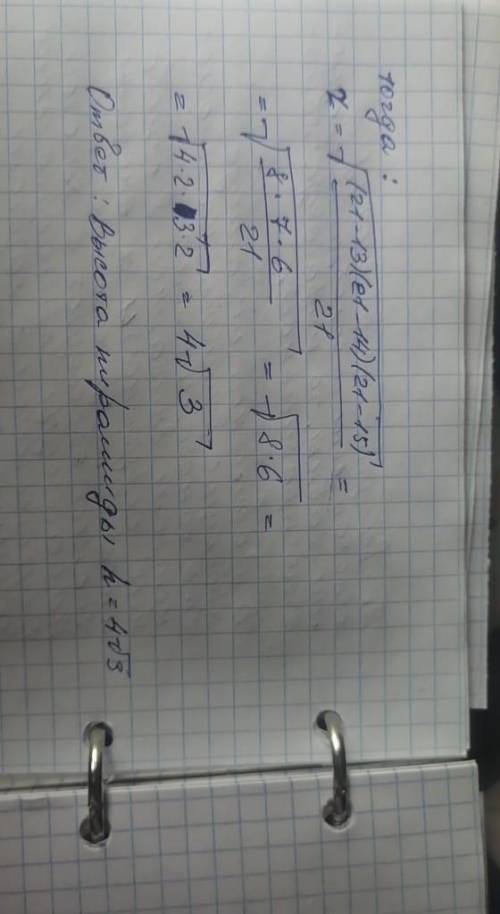 тогда:
r = √((21-13)(21-14)(21-15)/21) =
= √(8·7·6/21) = √(8·6 =
= √(4·2·3·2) = 4√3
Ответ: Высота пирамиды h = 4√3